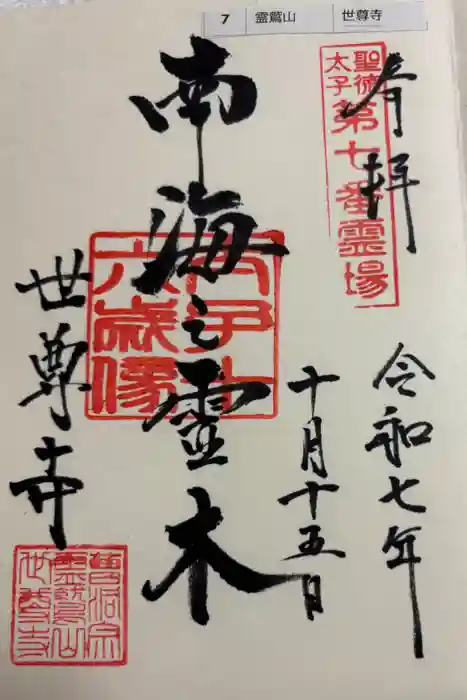 7 霊鷲山 世尊寺
奉拝
聖徳太子
第七番霊場
令和七年
十月十五日
南海之霊木
太子十
六歳像
世尊寺
曹洞宗
霊鷲山
世尊寺